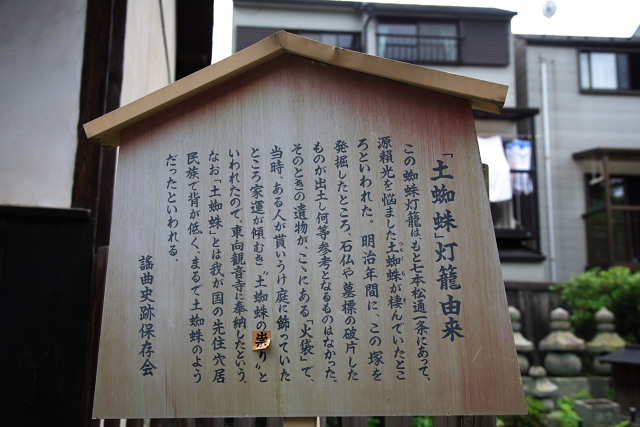 「土蜘蛛」灯籠由来
この蜘蛛灯籠は、もと七本松通一条にあって、
源頼光を悩ました土蜘蛛が棲んでいたとこ
ろといわれた。明治年間に、この塚を
発掘したところ、石仏や墓標の破片した
ものが出土し何等参考となるものはなかった。
そのときの遺物が、こゝにある「火袋」で、
当時、ある人が貰いうけ庭に飾っていた
ところ家運が傾むき〝土蜘蛛の祟り〟と
いわれたので、東向観音寺に奉納したという。
なお「土蜘蛛」とは我が国の先住穴居
民族で背が低く、まるで土蜘蛛のよう
だったといわれる。
謠曲史跡保存会